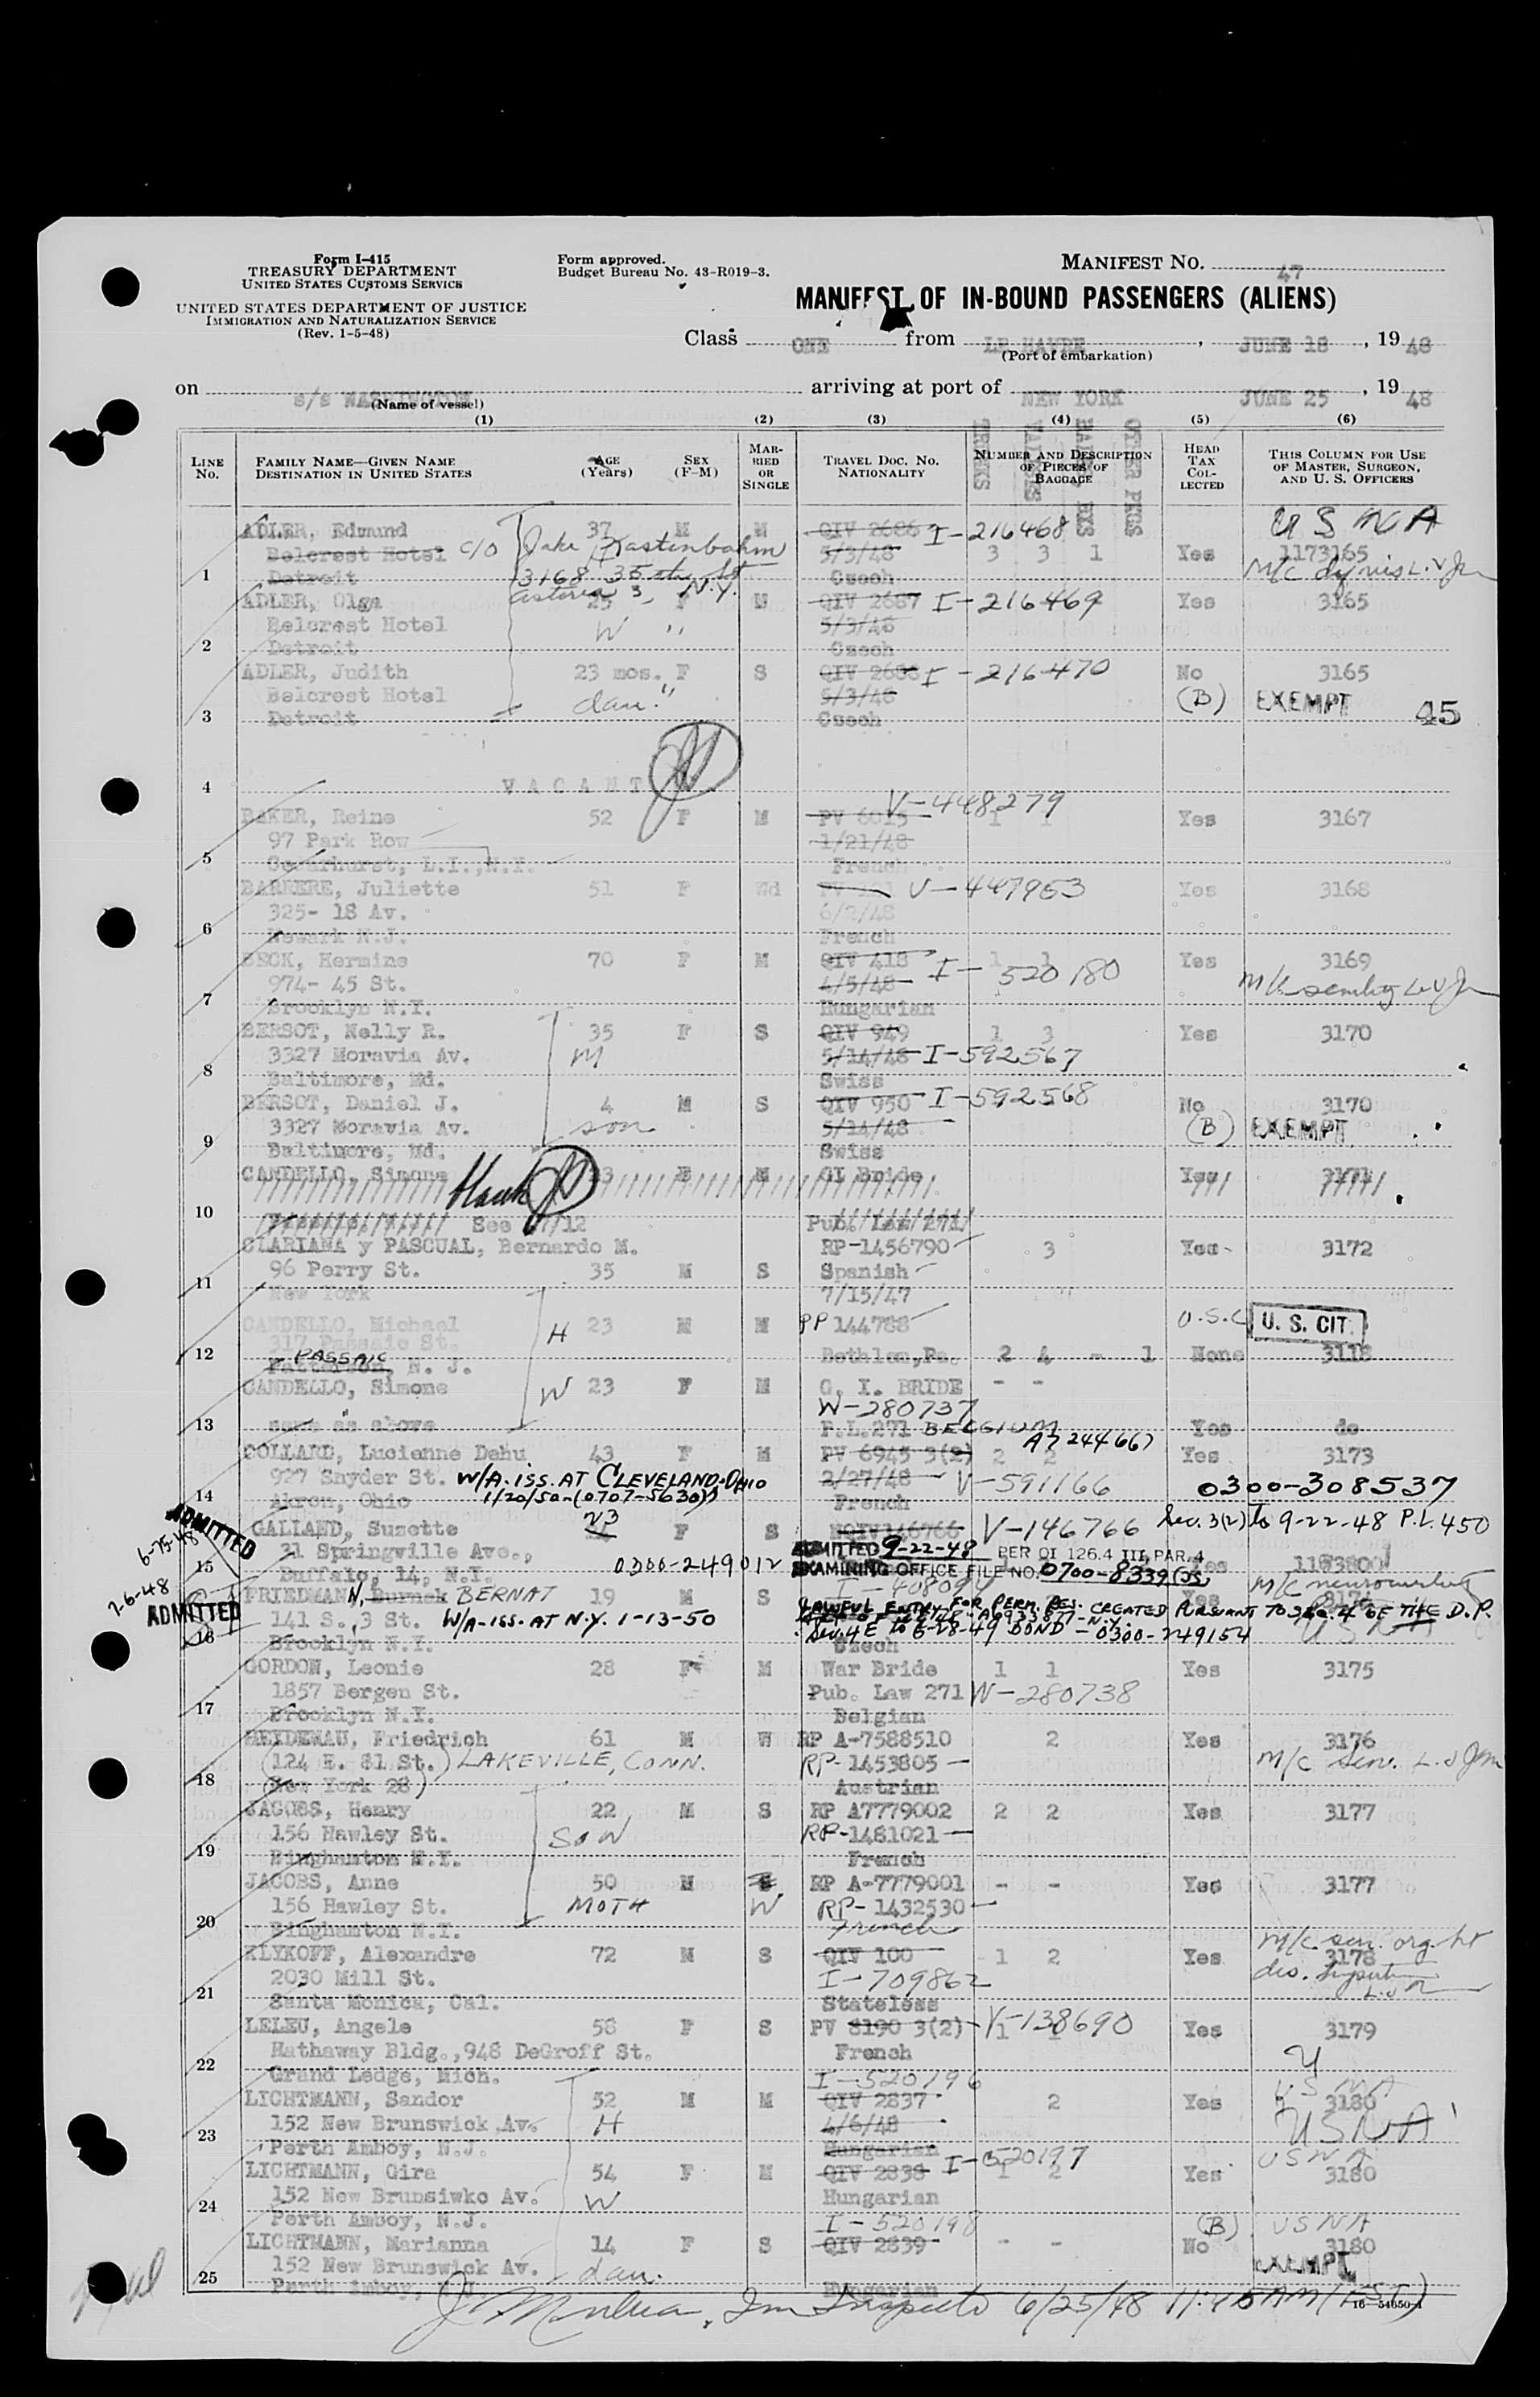 Form I-415
TREASURY DEPARTMENT
UNITED STATES CUSTOMS SERVICE
UNITED STATES DEPARTMENT OF JUSTICE
IMMIGRATION AND NATURALIZATION SERVICE
(Rev. 1-5-48)
Form approved.
Budget Bureau No. 43-R019-3.
MANIFEST NO. 47
MANIFEST OF IN-BOUND PASSENGERS (ALIENS)
Class ONE from LE HAVRE, JUNE 18, 1948
(Port of embarkation)
on s/s WASHINGTON arriving at port of NEW YORK JUNE 25, 1948
(Name of vessel)
(1) (2) (3) (4) (5) (6)
LINE NO.
FAMILY NAME—GIVEN NAME
DESTINATION IN UNITED STATES
AGE (Years)
SEX (F-M)
MARRIED OR SINGLE
TRAVEL DOC. NO.
NATIONALITY
NUMBER AND DESCRIPTION OF PIECES OF BAGGAGE
TRUNKS
OTHER PKGS
HEAD TAX COLLECTED
THIS COLUMN FOR USE OF MASTER, SURGEON, AND U. S. OFFICERS
ADLER, Edmund 37 M M QIV 2686 I-216468 U S N A
Belcrest Hotel c/o Jake 5/3/48 3 3 1 Yes 1173165
1 Detroit 3168 35th St Czech
Astoria 3, N.Y.
ADLER, Olga 25 F M QIV 2687 I-216469 Yes 3165
Belcrest Hotel W " 5/3/48
2 Detroit Czech
ADLER, Judith 23 mos. F S QIV 2688 I-216470 No 3165
Belcrest Hotel dau. " 5/3/48 (B) EXEMPT 45
3 Detroit Czech
4 VACANT
BAKER, Reine 52 F M PV 6015 V-448279 1 1 Yes 3167
97 Park Row 1/21/48
5 Cedarhurst, L.I.,N.Y. French
BARRERE, Juliette 51 F Wd V-447953 Yes 3168
325- 18 Av. 6/2/48
6 Newark N.J. French
BECK, Hermine 70 F M QIV 418 1 1 Yes 3169
974- 45 St. 4/5/48 I-520180
7 Brooklyn N.Y. Hungarian
BERSOT, Nelly R. 35 F S QIV 949 1 3 Yes 3170
3327 Moravia Av. M 5/14/48 I-592567
8 Baltimore, Md. Swiss
BERSOT, Daniel J. 4 M S QIV 950 I-592568 No 3170
3327 Moravia Av. son 5/14/48 (B) EXEMPT
9 Baltimore, Md. Swiss
CANDELLO, Simone 23 F M GI Bride Yes 3171
10 See 47/12 Pub. Law 271
CLARIANA y PASCUAL, Bernardo M. RP-1456790 3 Yes 3172
96 Perry St. 35 M S Spanish
11 New York 7/15/47
CANDELLO, Michael H 23 M M PP 144788 U.S.C. U. S. CIT.
317 Passaic St.
12 PASSAIC N. J. Bethlem, Pa. 2 4 - 1 None 3118
CANDELLO, Simone W 23 F M G. I. BRIDE - -
W-280737
13 same as above P.L.271 BELGIUM Yes do
COLLARD, Lucienne Dehu 43 F M PV 6945 3(2) A7244667 2 2 Yes 3173
927 Snyder St. W/A-iss. AT CLEVELAND-OHIO 2/27/48 V-591166 0300-308537
14 Akron, Ohio 1/20/50-(0707-5630) French
ADMITTED 6-25-48
GALLAND, Suzette 23 F S V-146766 Sec. 3(2) to 9-22-48 P.L. 450
31 Springville Ave., ADMITTED 9-22-48 PER OI 126.4 III, PAR. 4
15 Buffalo, 14, N.Y. 0300-249012 EXAMINING OFFICE FILE NO. 0700-8339(DS) Yes 1183800
7-6-48 ADMITTED
FRIEDMANN, BERNAT 19 M S I-408094 Yes
141 S. 3 St. W/A-iss. AT N.Y. 1-13-50 LAWFUL ENTRY FOR PERM. RES. CREATED PURSUANT TO SEC. 4 OF THE D.P.
Sec. 4E to 6-28-49 BOND - 0300-249154
16 Brooklyn N.Y. Czech
GORDON, Leonie 28 F M War Bride 1 1 Yes 3175
1857 Bergen St. Pub. Law 271 W-280738
17 Brooklyn N.Y. Belgian
HEYDENAU, Friedrich 61 M W RP A-7588510 2 Yes 3176
(124 E. 81 St.) LAKEVILLE, CONN. RP-1453805
18 (New York 28) Austrian
JACOBS, Henry 22 M S RP A7779002 2 2 Yes 3177
156 Hawley St. SON RP-1481021
19 Binghamton N.Y. French
JACOBS, Anne 50 M RP A-7779001 - - Yes 3177
156 Hawley St. MOTH W RP-1432530
20 Binghamton N.Y. French
KLYKOFF, Alexandre 72 M S QIV 100 1 2 Yes 3178
2030 Mill St. I-709862
21 Santa Monica, Cal. Stateless
LELEU, Angele 58 F S PV 8190 3(2) V-138690 1 1 Yes 3179
Hathaway Bldg.,948 DeGroff St. French
22 Grand Ledge, Mich. I-520196
LICHTMANN, Sandor 52 M M QIV 2837 2 Yes 3180 USNA
152 New Brunswick Av. H 4/6/48 USNA
23 Perth Amboy, N.J. Hungarian
LICHTMANN, Gira 54 F M QIV 2838 I-520197 1 2 Yes 3180 USNA
152 New Brunsiwkc Av. W Hungarian
24 Perth Amboy, N.J. I-520198 (B) USNA
LICHTMANN, Marianna 14 F S QIV 2839 - - No 3180
152 New Brunswick Av. dau. EXEMPT
25 Perth Amboy, N.J. Hungarian
6/25/48 11:45 AM (EST)
16—54650-1